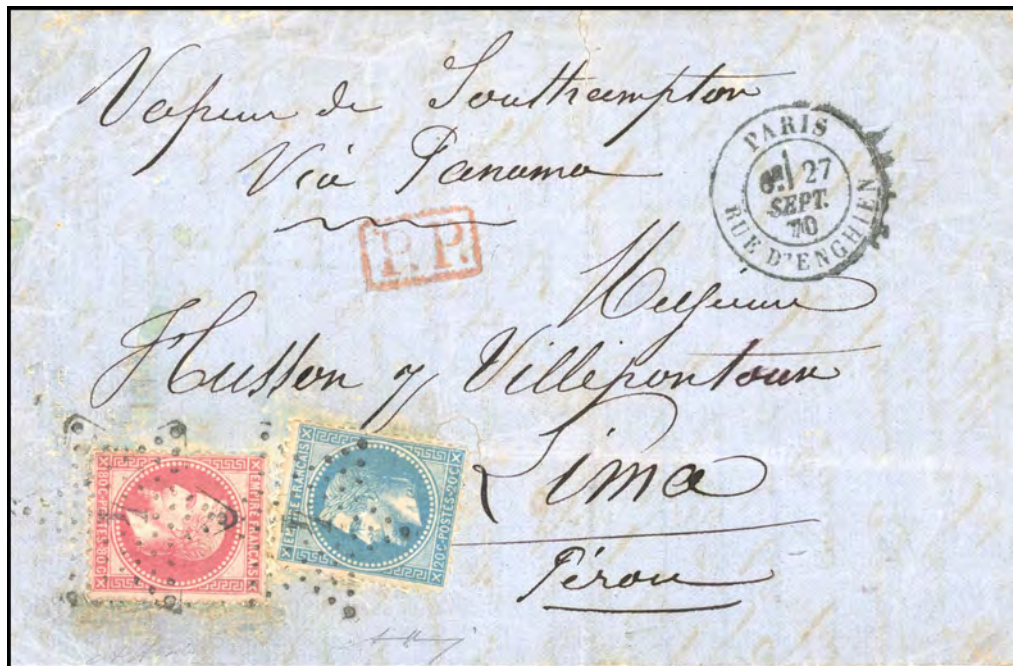 Vapeur de Southampton
Via Panama
PARIS
6E/ 27
SEPT.
70
RUE D'ENGHIEN
P.P.
Husson y Villepontoux
Lima
Pérou
EMPIRE FRANCAIS
80C-POSTES-80C
EMPIRE FRANCAIS
20C-POSTES-20C